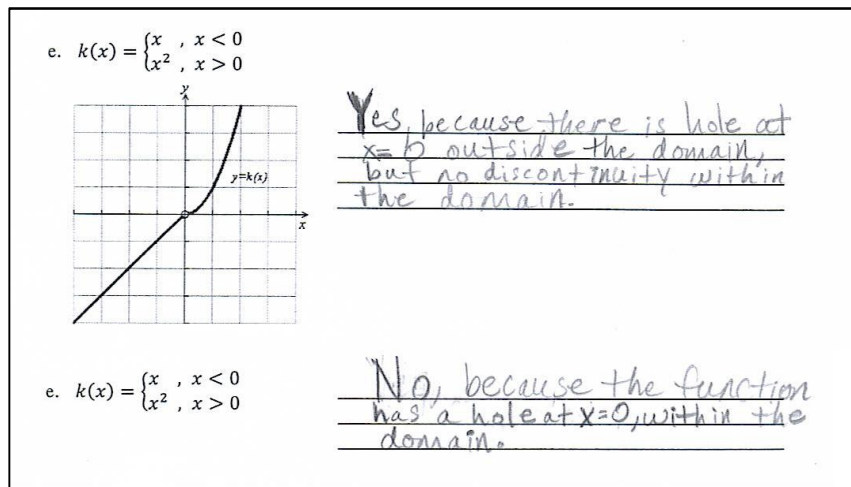 e. k(x) = {x , x < 0
x² , x > 0
y
Yes, because there is hole at
x=0 outside the domain,
but no discontinuity within
the domain.
y=k(x)
x
e. k(x) = {x , x < 0
x² , x > 0
No, because the function
has a hole at x=0, within the
domain.